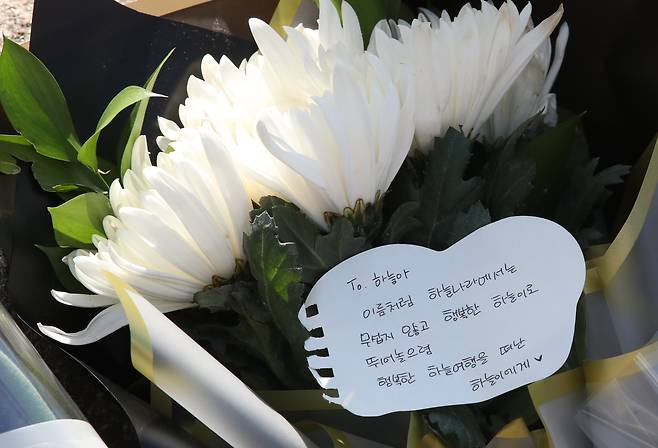 To. 하늘아
이름처럼 하늘나라에서는
무섭지 않고 행복한 하늘이로
뛰어놓으렴
행복한 하늘여행을 떠난
하늘이에게 ♥